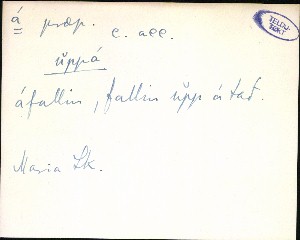 á præp.
c. acc.
uppá
áfallin, fallin upp á tað.
Maria Sk.
TELDU-
TØKT